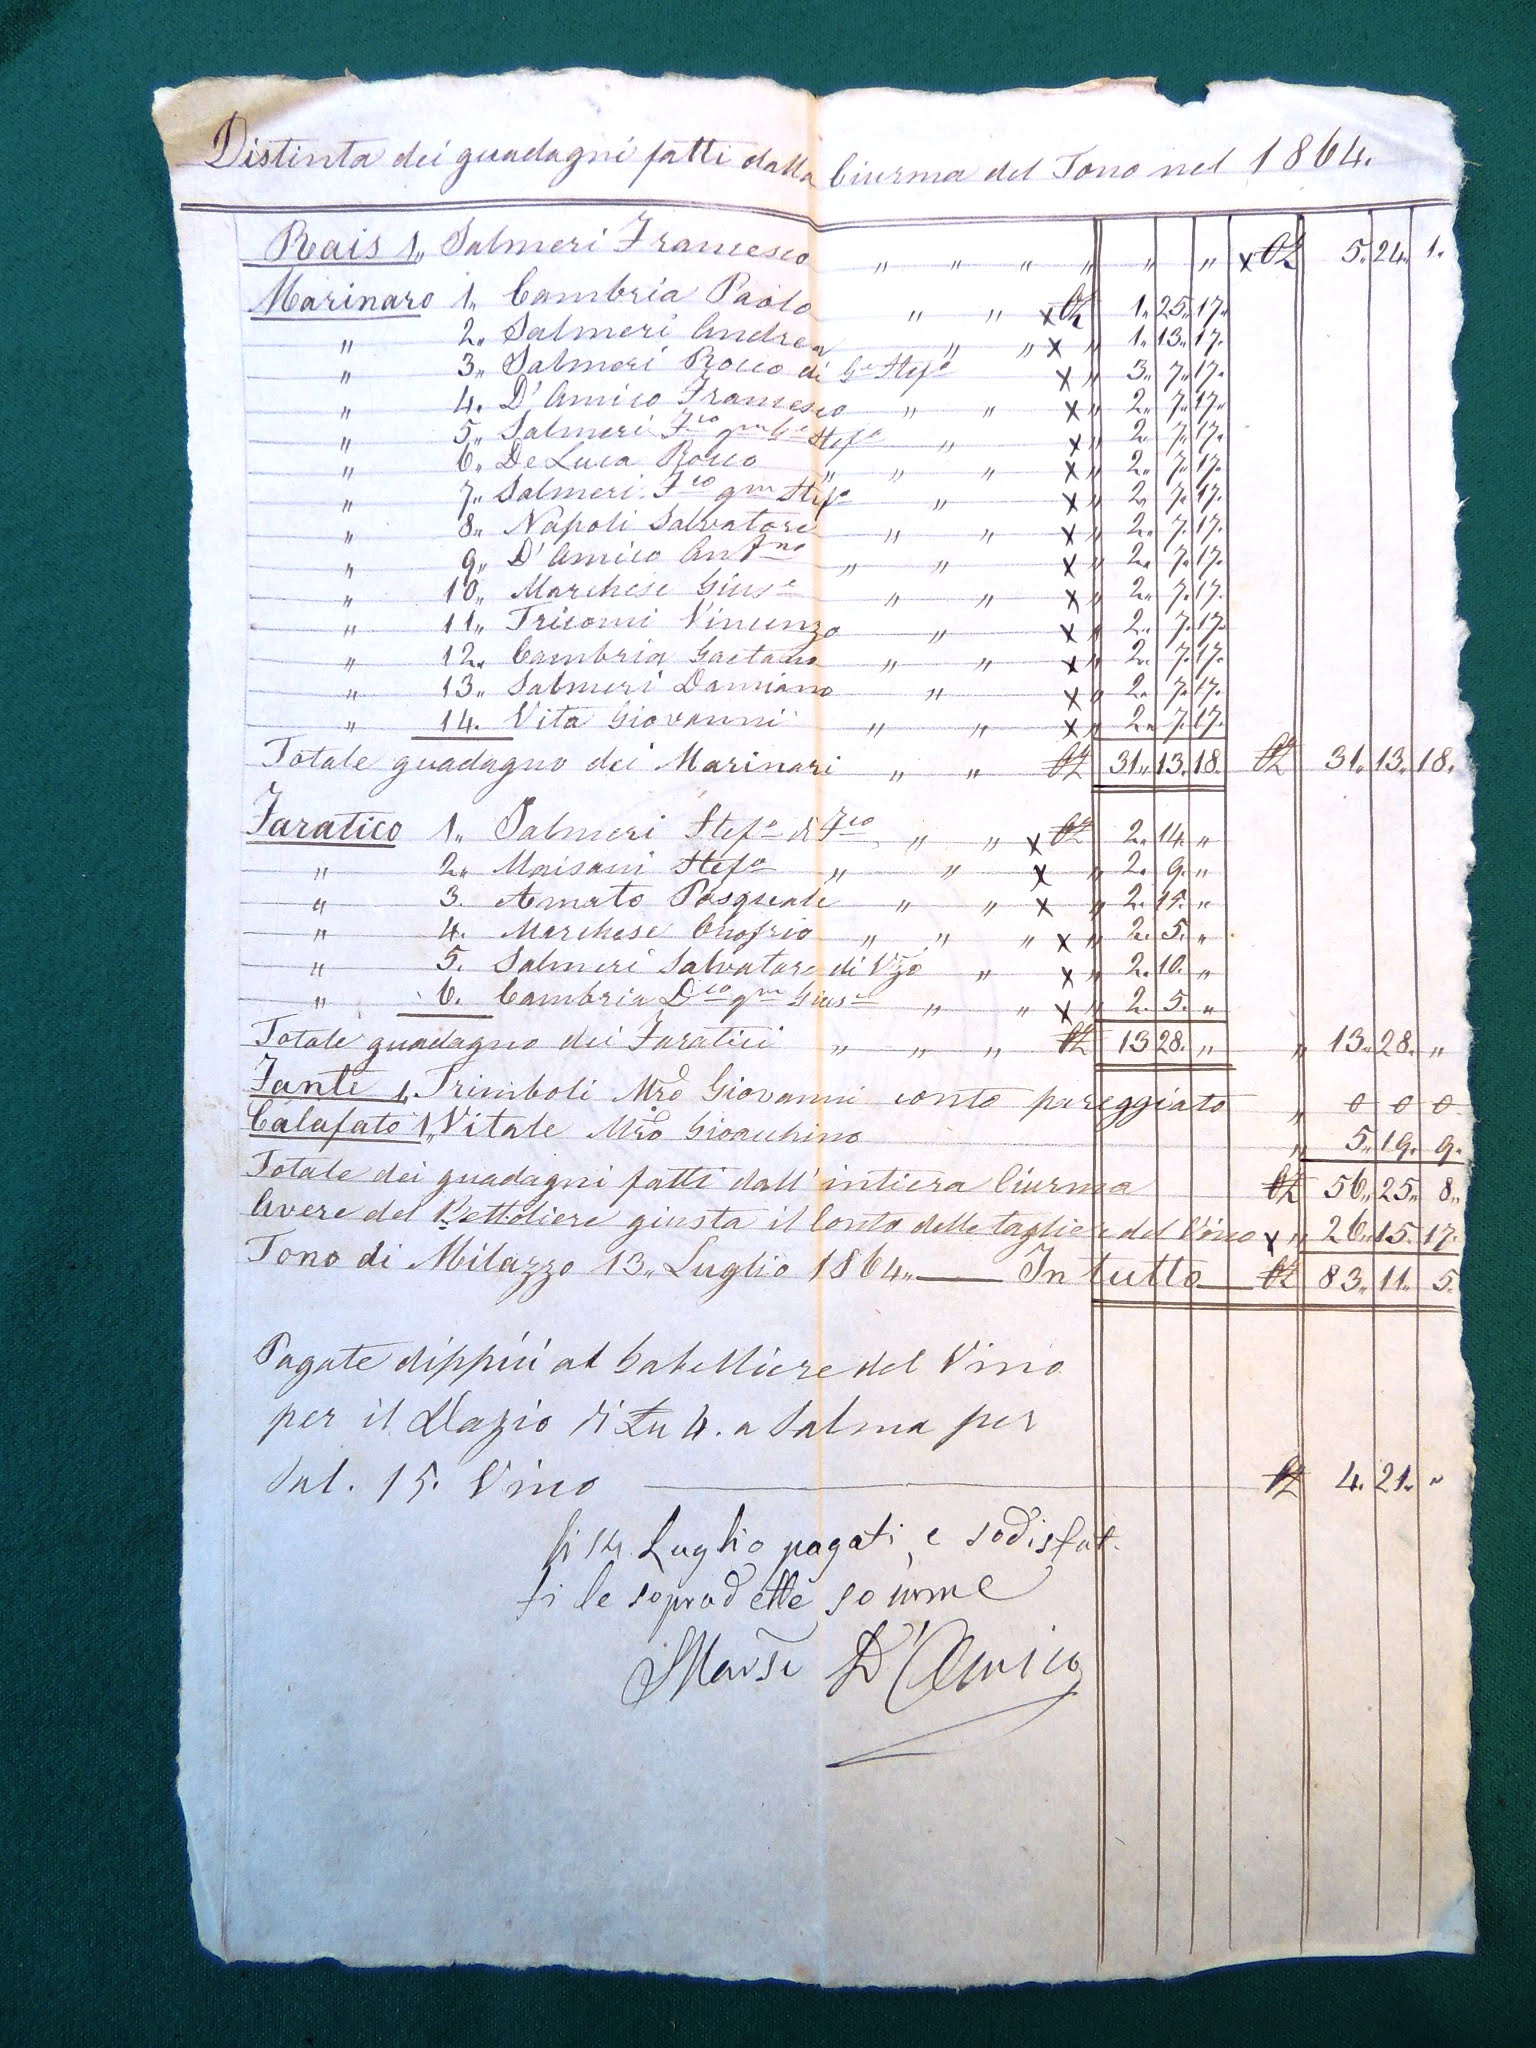 Distinta dei guadagni fatti dalla Ciurma del Tono nel 1864.
Rais 1,, Salmeri Francesco ,, ,, ,, ,, ,, ,, x Oz 5. 24. 1.
Marinaro 1,, Cambria Paolo ,, ,, x Oz 1,, 25,, 17,,
,, 2,, Salmeri Andrea ,, ,, x ,, 1,, 13,, 17.
,, 3,, Salmeri Rocco di Ge Stefo x ,, 3,, 7,, 17.
,, 4. D'Amico Francesco ,, ,, x ,, 2,, 7,, 17,,
,, 5,, Salmeri Fco qm Ge Stefo ,, x ,, 2. 7,, 17.
,, 6,, De Luca Rocco ,, ,, ,, x ,, 2,, 7,, 17.
,, 7,, Salmeri Fco qm Stefo ,, x ,, 2,, 7. 17.
,, 8,, Napoli Salvatore ,, ,, x ,, 2,, 7. 17.
,, 9,, D'Amico Antno ,, ,, x ,, 2,, 7. 17.
,, 10,, Marchese Giuse ,, ,, x ,, 2,, 7. 17.
,, 11,, Tricomi Vincenzo ,, x ,, 2,, 7. 17.
,, 12,, Cambria Gaetano ,, ,, x ,, 2,, 7. 17.
,, 13,, Salmeri Damiano ,, x ,, 2. 7. 17.
,, 14. Vita Giovanni ,, ,, x ,, 2,, 7. 17.
Totale guadagno dei Marinari ,, ,, Oz 31,, 13. 18. Oz 31,, 13. 18.
Faratico 1,, Salmeri Stefo di Fco ,, ,, x Oz 2,, 14. ,,
,, 2,, Maisani Stefo ,, ,, x ,, 2. 9. ,,
,, 3. Amato Pasquale ,, ,, x ,, 2. 15. ,,
,, 4. Marchese Onofrio ,, ,, ,, x ,, 2. 5. ,,
,, 5. Salmeri Salvatore di Vzo ,, x ,, 2. 10. ,,
,, 6. Cambria Dco qm Giuse ,, ,, x ,, 2. 5. ,,
Totale guadagno dei Faratici ,, ,, ,, Oz 13 28. ,, ,, 13,, 28. ,,
Fante 1. Trimboli Mro Giovanni conto pareggiato ,, 0 0 0
Calafato 1,, Vitale Mro Gioacchino ,, 5,, 19. 9.
Totale dei guadagni fatti dall'intiera Ciurma Oz 56,, 25,, 8,,
Avere del Bettoliere giusta il Conto delle taglie del Vino x ,, 26,, 15. 17.
Tono di Milazzo 13,, Luglio 1864,, In tutto Oz 83,, 11,, 5.
Pagate dippiù al Gabelliere del Vino
per il Dazio di 4. a Salma per
Sal. 15. Vino Oz 4. 21. ,,
Li 14 Luglio pagati, e sodisfat-
ti le sopradette somme
D'Amico